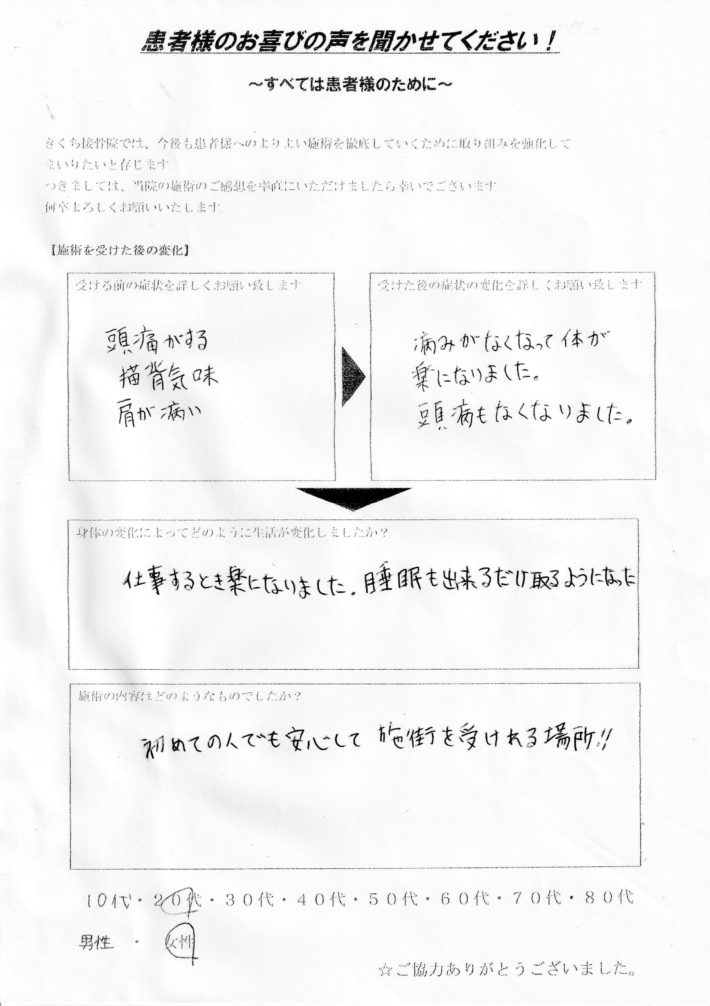 患者様のお喜びの声を聞かせてください！
～すべては患者様のために～
きくち接骨院では、今後も患者様へのよりよい施術を徹底していくために取り組みを強化して
まいりたいと存じます
つきましては、当院の施術のご感想を率直にいただけましたら幸いでございます
何卒よろしくお願いいたします
【施術を受けた後の変化】
受ける前の症状を詳しくお願い致します
頭痛がする
猫背気味
肩が痛い
受けた後の症状の変化を詳しくお願い致します
痛みがなくなって体が
楽になりました。
頭痛もなくなりました。
身体の変化によってどのように生活が変化しましたか？
仕事するとき楽になりました。睡眠も出来るだけ取るようになった
施術の内容はどのようなものでしたか？
初めての人でも安心して施術を受けれる場所!!
10代・20代・30代・40代・50代・60代・70代・80代
男性 ・ 女性
☆ご協力ありがとうございました。